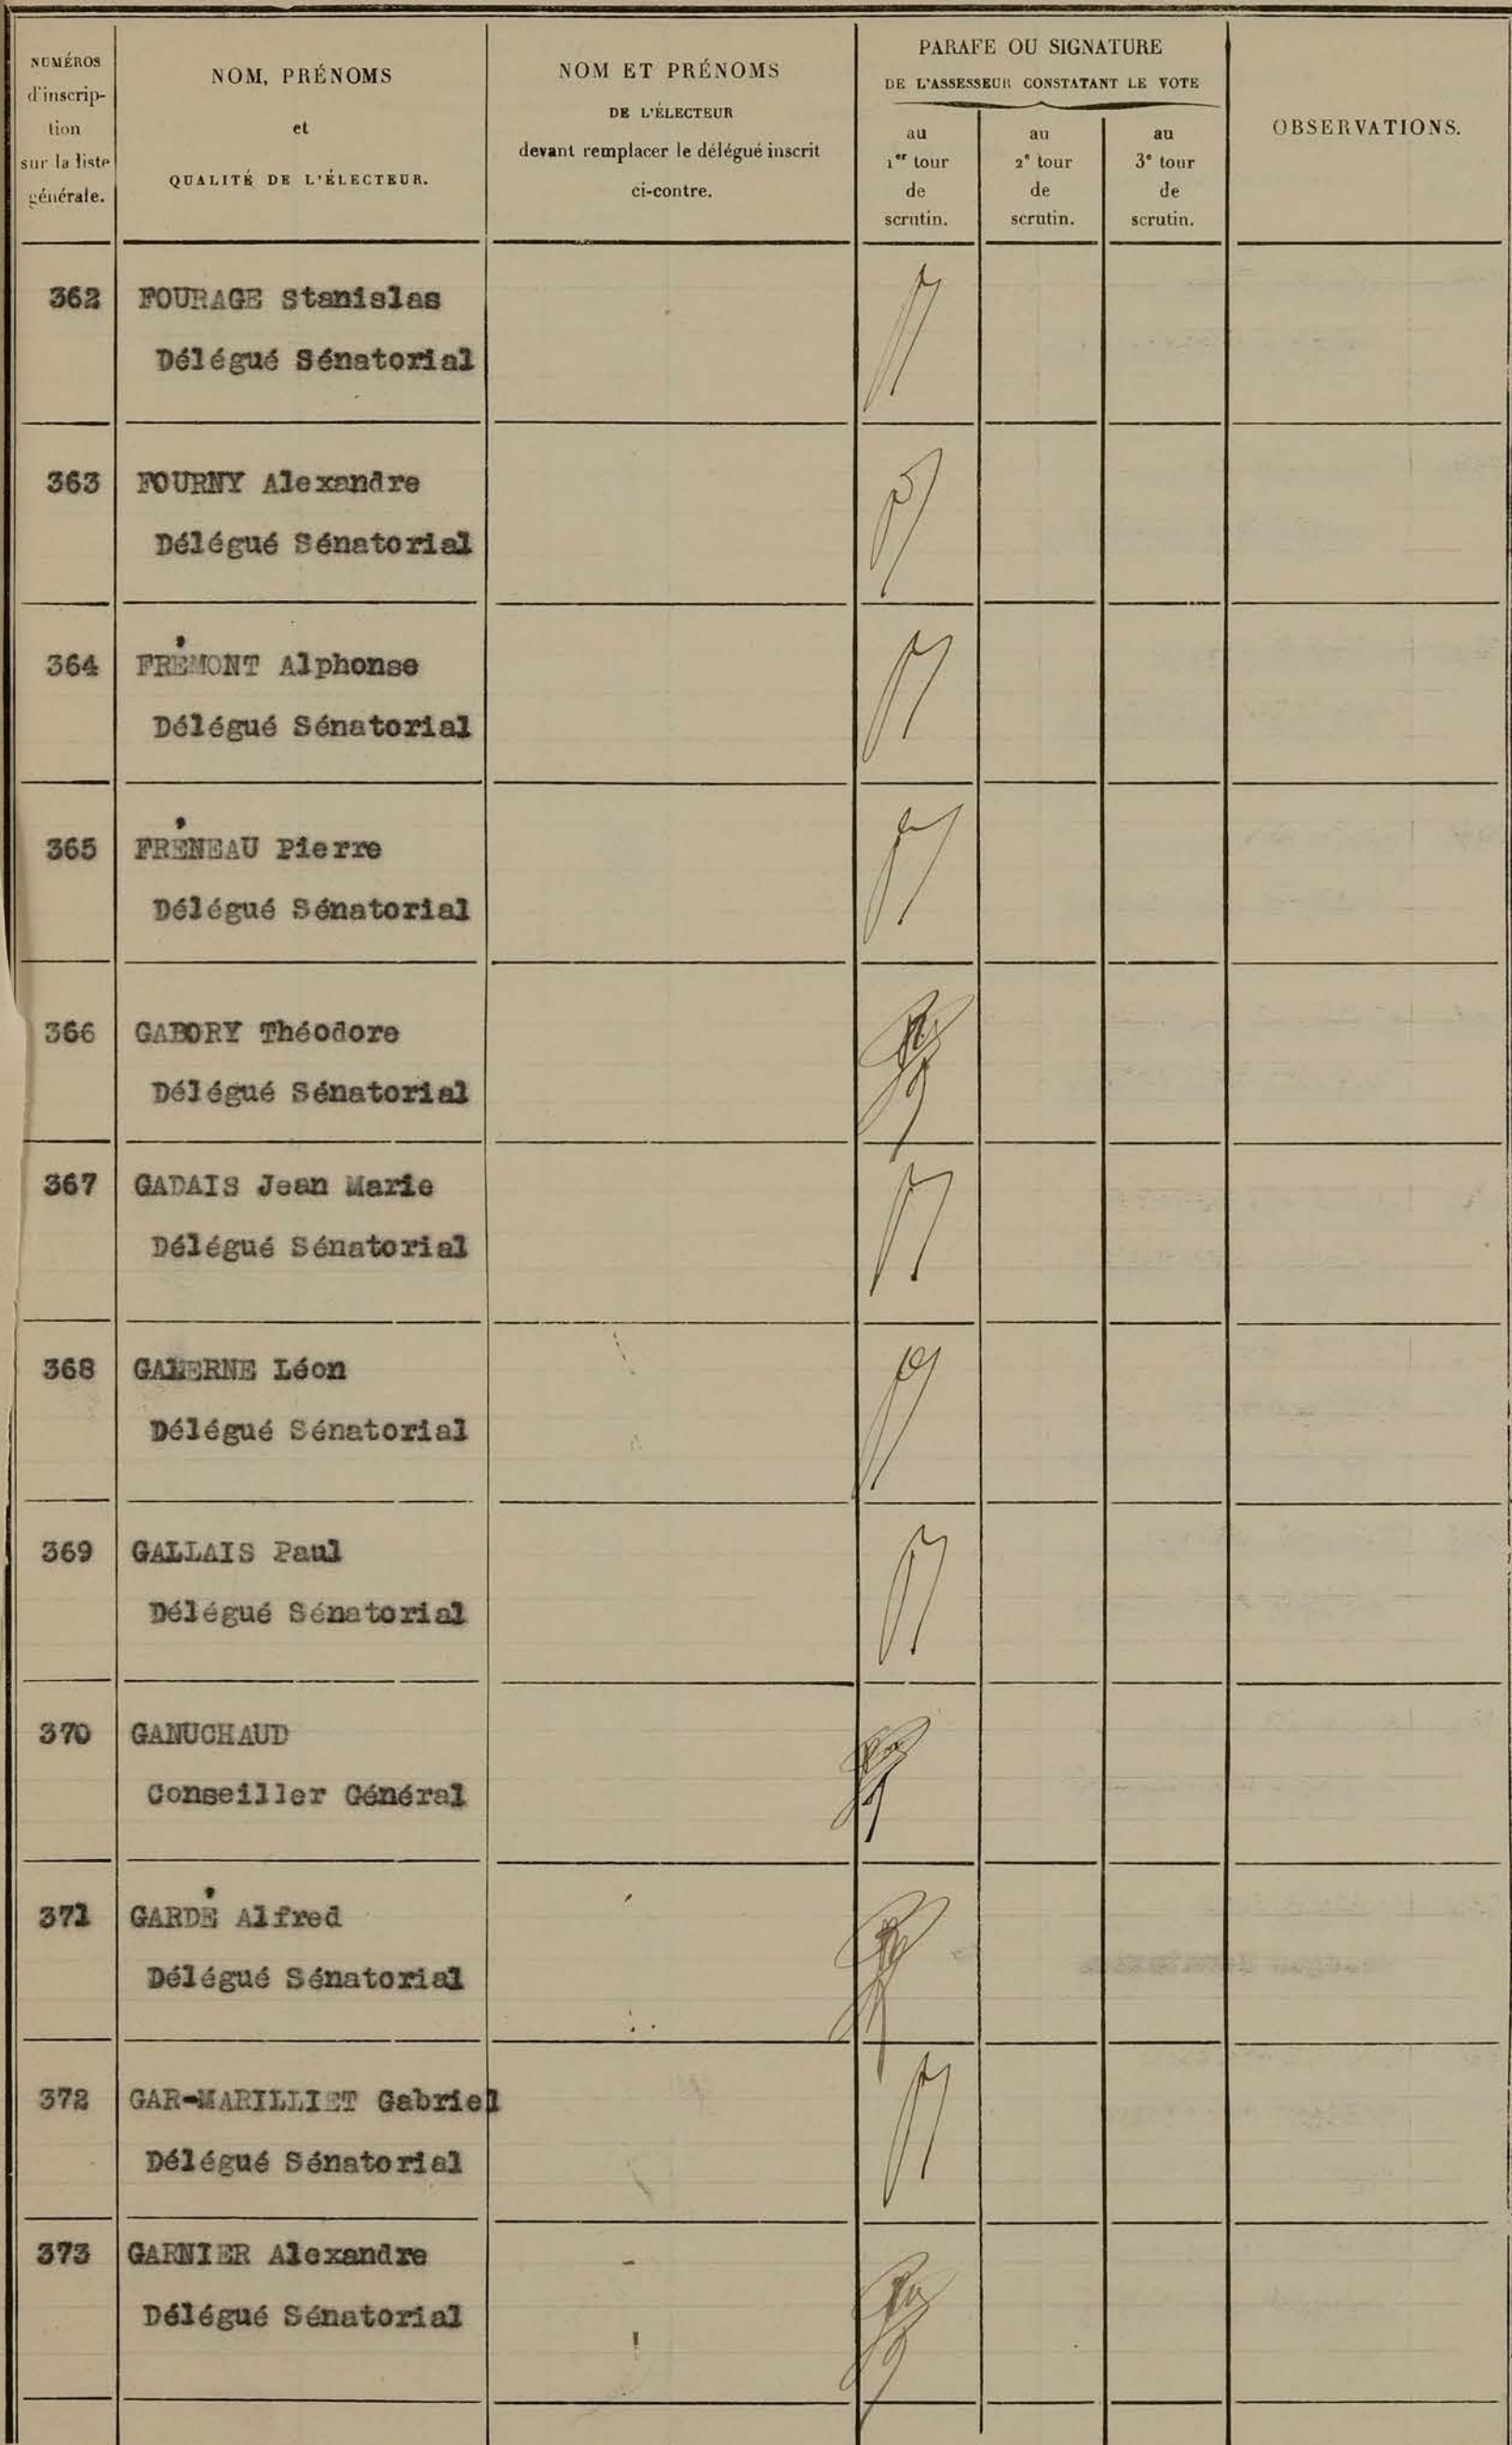 NUMÉROS
d'inscrip-
tion
sur la liste
générale.
NOM, PRÉNOMS
et
QUALITÉ DE L'ÉLECTEUR.
NOM ET PRÉNOMS
DE L'ÉLECTEUR
devant remplacer le délégué inscrit
ci-contre.
PARAFE OU SIGNATURE
DE L'ASSESSEUR CONSTATANT LE VOTE
au
1er tour
de
scrutin.
au
2e tour
de
scrutin.
au
3e tour
de
scrutin.
OBSERVATIONS.
362 FOURAGE Stanislas
Délégué Sénatorial
363 FOURNY Alexandre
Délégué Sénatorial
364 FRÉMONT Alphonse
Délégué Sénatorial
365 FRÉNEAU Pierre
Délégué Sénatorial
366 GABORY Théodore
Délégué Sénatorial
367 GADAIS Jean Marie
Délégué Sénatorial
368 GALERNE Léon
Délégué Sénatorial
369 GALLAIS Paul
Délégué Sénatorial
370 GANUCHAUD
Conseiller Général
371 GARDÉ Alfred
Délégué Sénatorial
372 GAR-MARILLIET Gabriel
Délégué Sénatorial
373 GARNIER Alexandre
Délégué Sénatorial